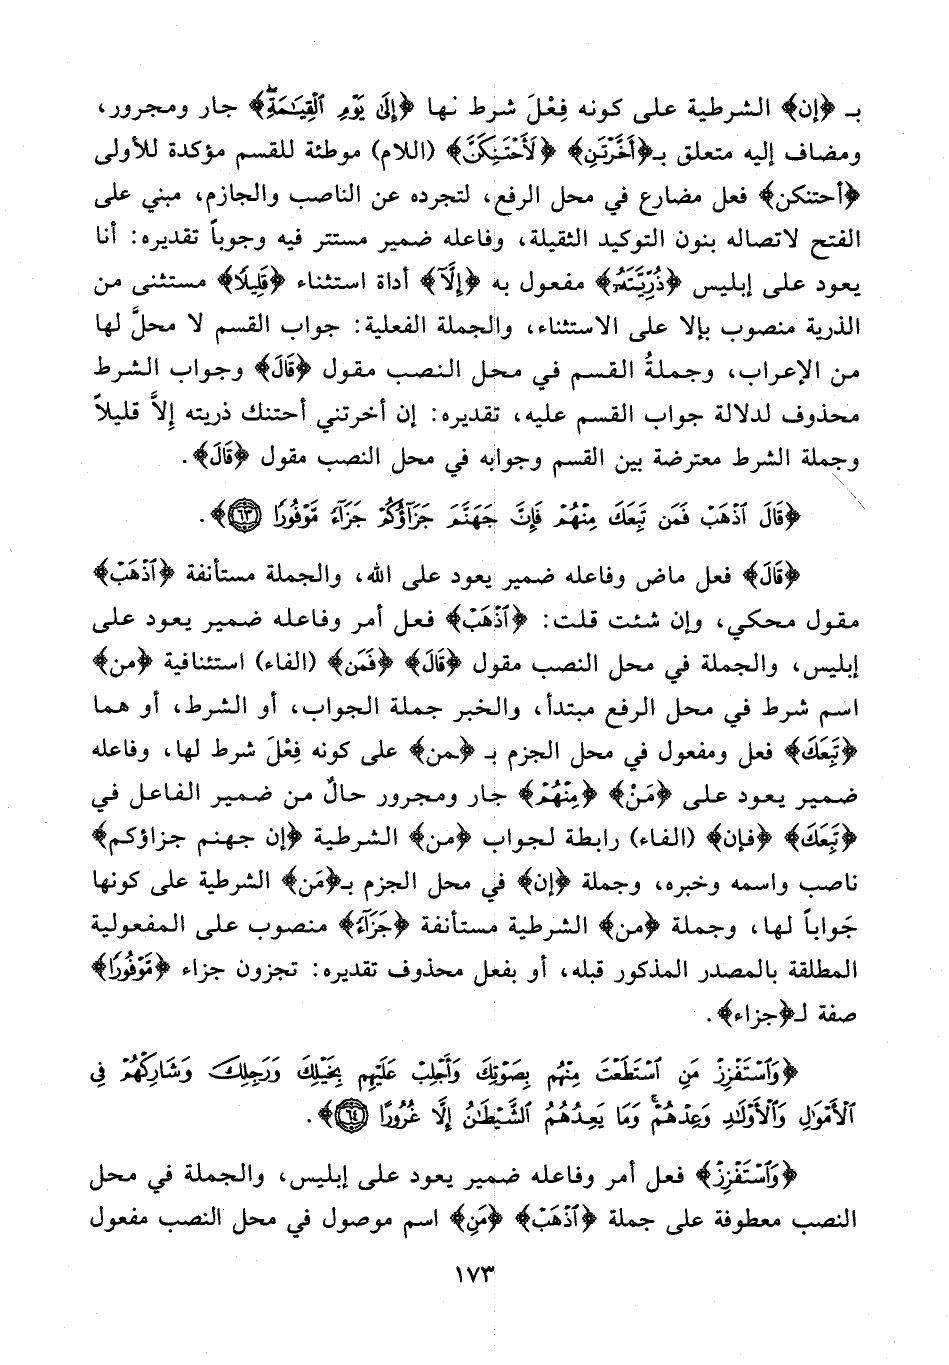 بـ ﴿إن﴾ الشرطية على كونه فِعْلَ شرط لها ﴿إِلَىٰ يَوْمِ ٱلْقِيَـٰمَةِ﴾ جار ومجرور،
ومضاف إليه متعلق بـ﴿أَخَّرْتَنِ﴾ ﴿لَأَحْتَنِكَنَّ﴾ (اللام) موطئة للقسم مؤكدة للأولى
﴿أحتنكن﴾ فعل مضارع في محل الرفع، لتجرده عن الناصب والجازم، مبني على
الفتح لاتصاله بنون التوكيد الثقيلة، وفاعله ضمير مستتر فيه وجوباً تقديره: أنا
يعود على إبليس ﴿ذُرِّيَّتَهُۥ﴾ مفعول به ﴿إِلَّا﴾ أداة استثناء ﴿قَلِيلًا﴾ مستثنى من
الذرية منصوب بإلا على الاستثناء، والجملة الفعلية: جواب القسم لا محلَّ لها
من الإعراب، وجملةُ القسم في محل النصب مقول ﴿قَالَ﴾ وجواب الشرط
محذوف لدلالة جواب القسم عليه، تقديره: إن أخرتني أحتنك ذريته إلاَّ قليلاً
وجملة الشرط معترضة بين القسم وجوابه في محل النصب مقول ﴿قَالَ﴾.
﴿قَالَ ٱذْهَبْ فَمَن تَبِعَكَ مِنْهُمْ فَإِنَّ جَهَنَّمَ جَزَآؤُكُمْ جَزَآءً مَّوْفُورًا ٦٣﴾.
﴿قَالَ﴾ فعل ماض وفاعله ضمير يعود على الله، والجملة مستأنفة ﴿ٱذْهَبْ﴾
مقول محكي، وإن شئت قلت: ﴿ٱذْهَبْ﴾ فعل أمر وفاعله ضمير يعود على
إبليس، والجملة في محل النصب مقول ﴿قَالَ﴾ ﴿فَمَن﴾ (الفاء) استئنافية ﴿من﴾
اسم شرط في محل الرفع مبتدأ، والخبر جملة الجواب، أو الشرط، أو هما
﴿تَبِعَكَ﴾ فعل ومفعول في محل الجزم بـ ﴿من﴾ على كونه فِعْلَ شرط لها، وفاعله
ضمير يعود على ﴿مَنْ﴾ ﴿مِنْهُمْ﴾ جار ومجرور حالٌ من ضمير الفاعل في
﴿تَبِعَكَ﴾ ﴿فإن﴾ (الفاء) رابطة لجواب ﴿من﴾ الشرطية ﴿إن جهنم جزاؤكم﴾
ناصب واسمه وخبره، وجملة ﴿إن﴾ في محل الجزم بـ﴿مَن﴾ الشرطية على كونها
جَواباً لها، وجملة ﴿من﴾ الشرطية مستأنفة ﴿جَزَآءً﴾ منصوب على المفعولية
المطلقة بالمصدر المذكور قبله، أو بفعل محذوف تقديره: تجزون جزاء ﴿مَّوْفُورًا﴾
صفة لـ﴿جزاء﴾.
﴿وَٱسْتَفْزِزْ مَنِ ٱسْتَطَعْتَ مِنْهُم بِصَوْتِكَ وَأَجْلِبْ عَلَيْهِم بِخَيْلِكَ وَرَجِلِكَ وَشَارِكْهُمْ فِى
ٱلْأَمْوَٰلِ وَٱلْأَوْلَـٰدِ وَعِدْهُمْ ۚ وَمَا يَعِدُهُمُ ٱلشَّيْطَـٰنُ إِلَّا غُرُورًا ٦٤﴾.
﴿وَٱسْتَفْزِزْ﴾ فعل أمر وفاعله ضمير يعود على إبليس، والجملة في محل
النصب معطوفة على جملة ﴿ٱذْهَبْ﴾ ﴿مَنِ﴾ اسم موصول في محل النصب مفعول
١٧٣